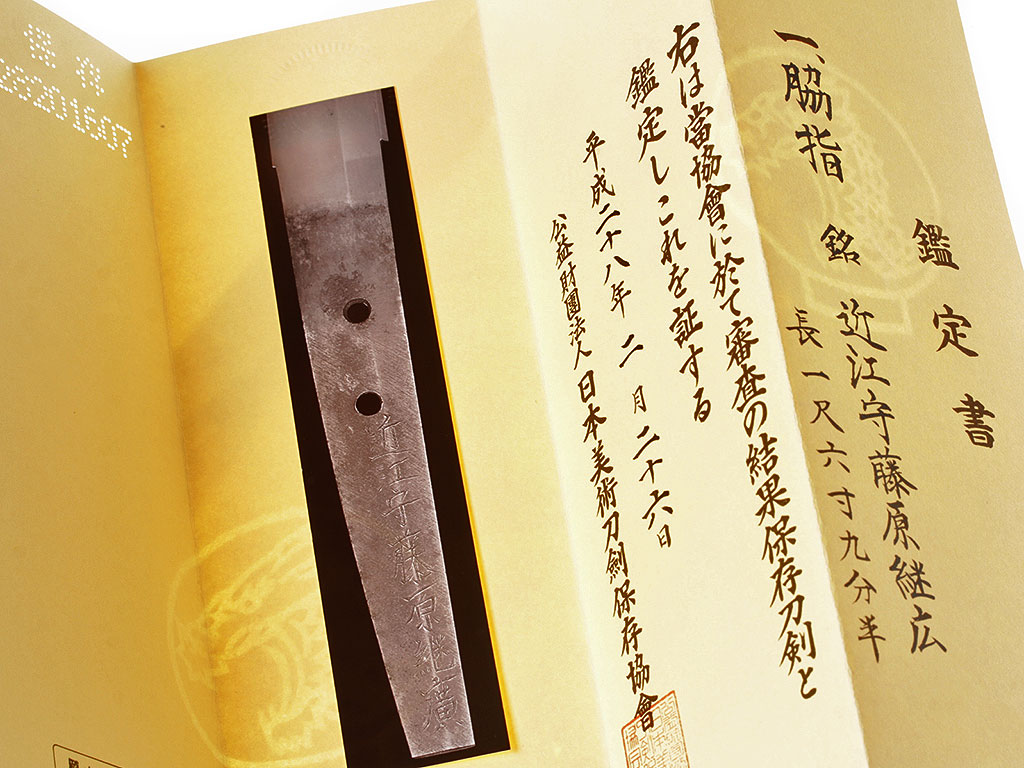 鑑定書
一、脇指 銘 近江守藤原継広
長一尺六寸九分半
右は當協會に於て審査の結果保存刀剣と
鑑定しこれを証する
平成二十八年 二月二十六日
公益財團法人日本美術刀劍保存協會
近江守藤原継廣
保存
201607